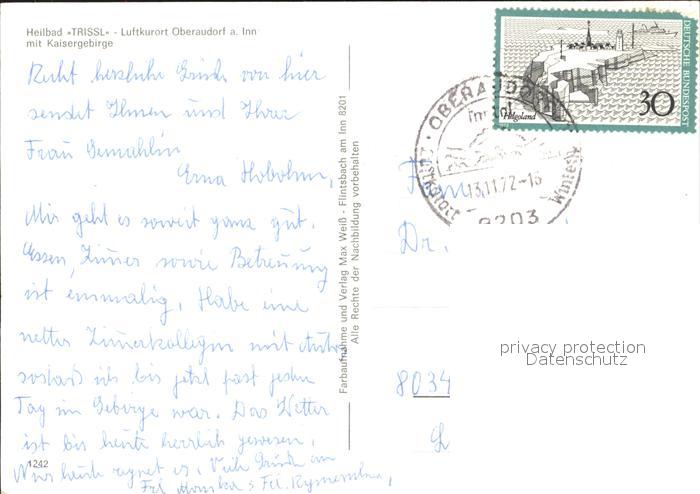 Heilbad »TRISSL« - Luftkurort Oberaudorf a. Inn
mit Kaisergebirge
Recht herzliche Grüße von hier
sendet Ihnen und Ihrer
Frau Gemahlin
Erna
Mir geht es soweit ganz gut.
Essen, Zimmer sowie Betreuung
ist einmalig. Habe eine
nette Zimmerkollegin mit Auto
sodaß ich bis jetzt fast jeden
Tag im Gebirge war. Das Wetter
ist bis heute herrlich gewesen.
Nur heute regnet es. Viele Grüße an
Frl. Monika
1242
Farbaufnahme und Verlag Max Weiß - Flintsbach am Inn 8201
Alle Rechte der Nachbildung vorbehalten
DEUTSCHE BUNDESPOST
30
Helgoland
OBERAUDORF
Inntal
13.11.72-16
Luftkurort
8203
Frau
Dr.
8034
privacy protection
Datenschutz